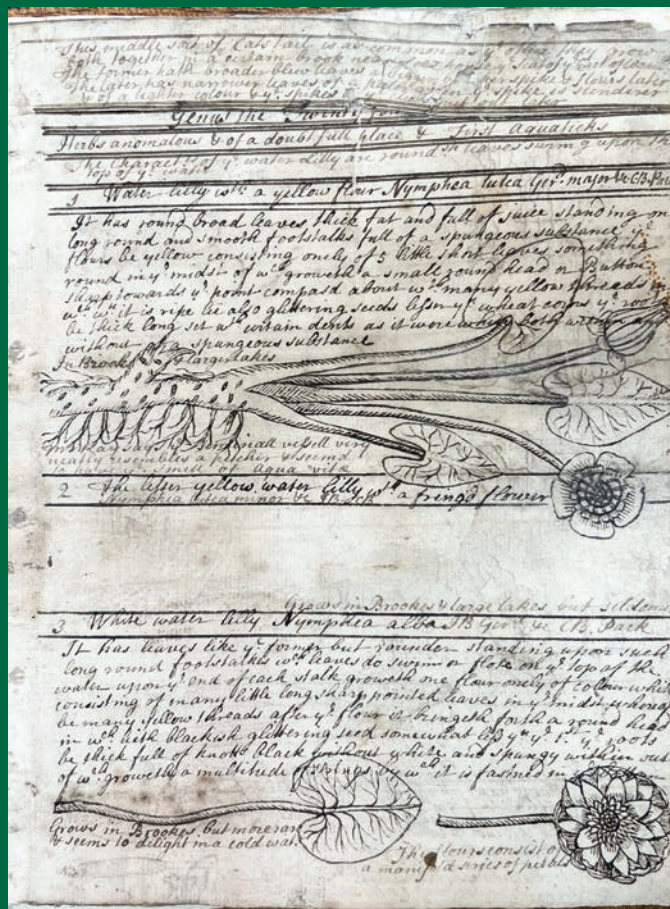 This middle sort of Cats tail is as common as yᵉ other they grow
both together in a certain brook near
The former hath broader blew leaves a bigger spike & flours later
The later has narrower leaves of a
of a lighter colour & yᵉ spikes slenderer
Genus the Twenty
Herbs anomalous & of a doubtfull place & First Aquaticks
The Characters of yᵉ water lilly are round leaves swimg upon the
top of yᵉ water
1 Water lilly wᵗʰ a yellow flour Nymphea lutea Ger. major &c CB Par
It has round broad leaves thick fat and full of juice standing on
long round and smooth footstalks full of a spungeous substance yᵉ
flours be yellow consising onely of 5 little short leaves something
round in yᵉ midst of wᶜʰ groweth a small round head or Button
sharp towards yᵉ point compasd about wᵗʰ many yellow threads in
wᶜʰ wⁿ it is ripe be also glittering seeds lesser yⁿ wheat corns yᵉ roo
be thick long set wᵗʰ certain dents as it were white both within and
without of a spungeous substance
In Brooks & large lakes
small vessell very
neatly resembles a pitcher & seemd
to have yᵉ smell of aqua vitæ
2 The lesser yellow water lilly wᵗʰ a fring'd flower
Nymphea lutea minor &c
Grows in Brookes & large lakes but seldom
3 White water lilly Nymphea alba JB Ger &c CB. Park
It has leaves like yᵉ former but rounder standing upon such
long round footstalkes wᶜʰ leaves do swim or flote on yᵉ top of the
water upon yᵉ end of each stalk groweth one flour onely of colour whi
consisting of many little long sharp pointed leaves in yᵉ midst wherof
be many yellow threads after yᵉ flour it bringeth forth a round head
in wᶜʰ lieth blackish glittering seed somewhat yⁿ yᵉ 1ˢᵗ yᵉ roots
be thick full of knotts black without white and spungy within out
of wᶜʰ groweth a multitude of strings by wᶜʰ it is fastned in
Grows in Brookes, but more rare
& seems to delight in a cold wat.
The flours consist of
a manifold series of petals